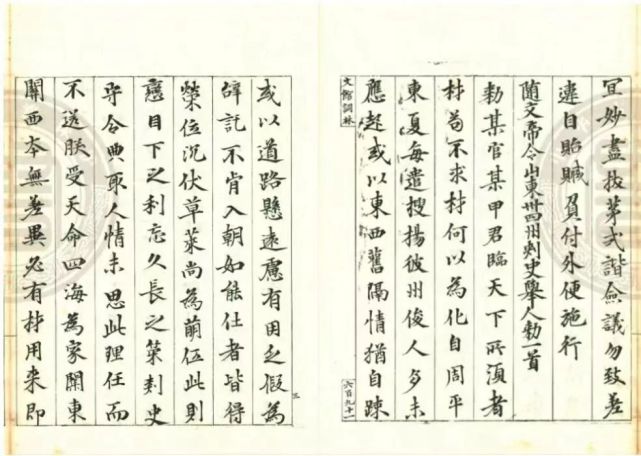 宜妙盡拔茅式諧僉議勿致差
違自貽贓負付外便施行
隨文帝令山東卅四州刾史舉人勑一首
勑某官某甲君臨天下所湏者
材苟不求材何以為化自周平
東夏每遣搜揚彼州俊人多未
應起或以東西舊隔情猶自踈
文館詞林
六百九十一
三
或以道路懸遠慮有困乏假為
辝託不肯入朝如能仕者皆得
榮位沉伏草萊尚為萌伍此則
惑目下之利忘久長之策刾史
守令典取人情未思此理任而
不送朕受天命四海為家關東
關西本無差異必有材用来即